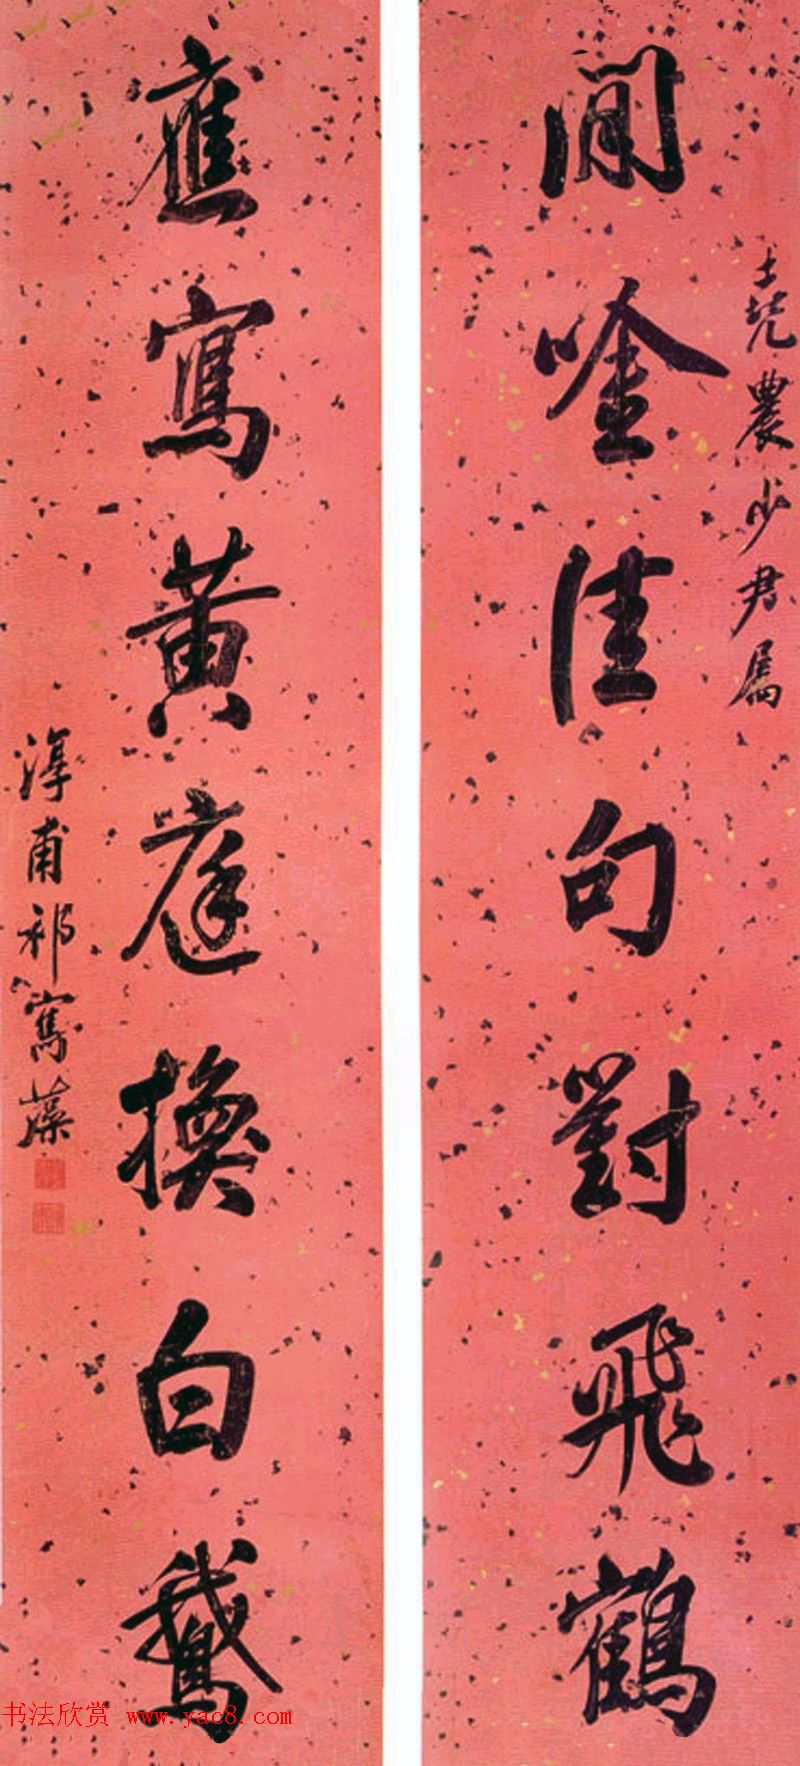 堯農少君属
閒唫佳句對飛鶴
應寫黃庭換白鵝
淳甫祁寯藻
书法欣赏 www.yac8.com